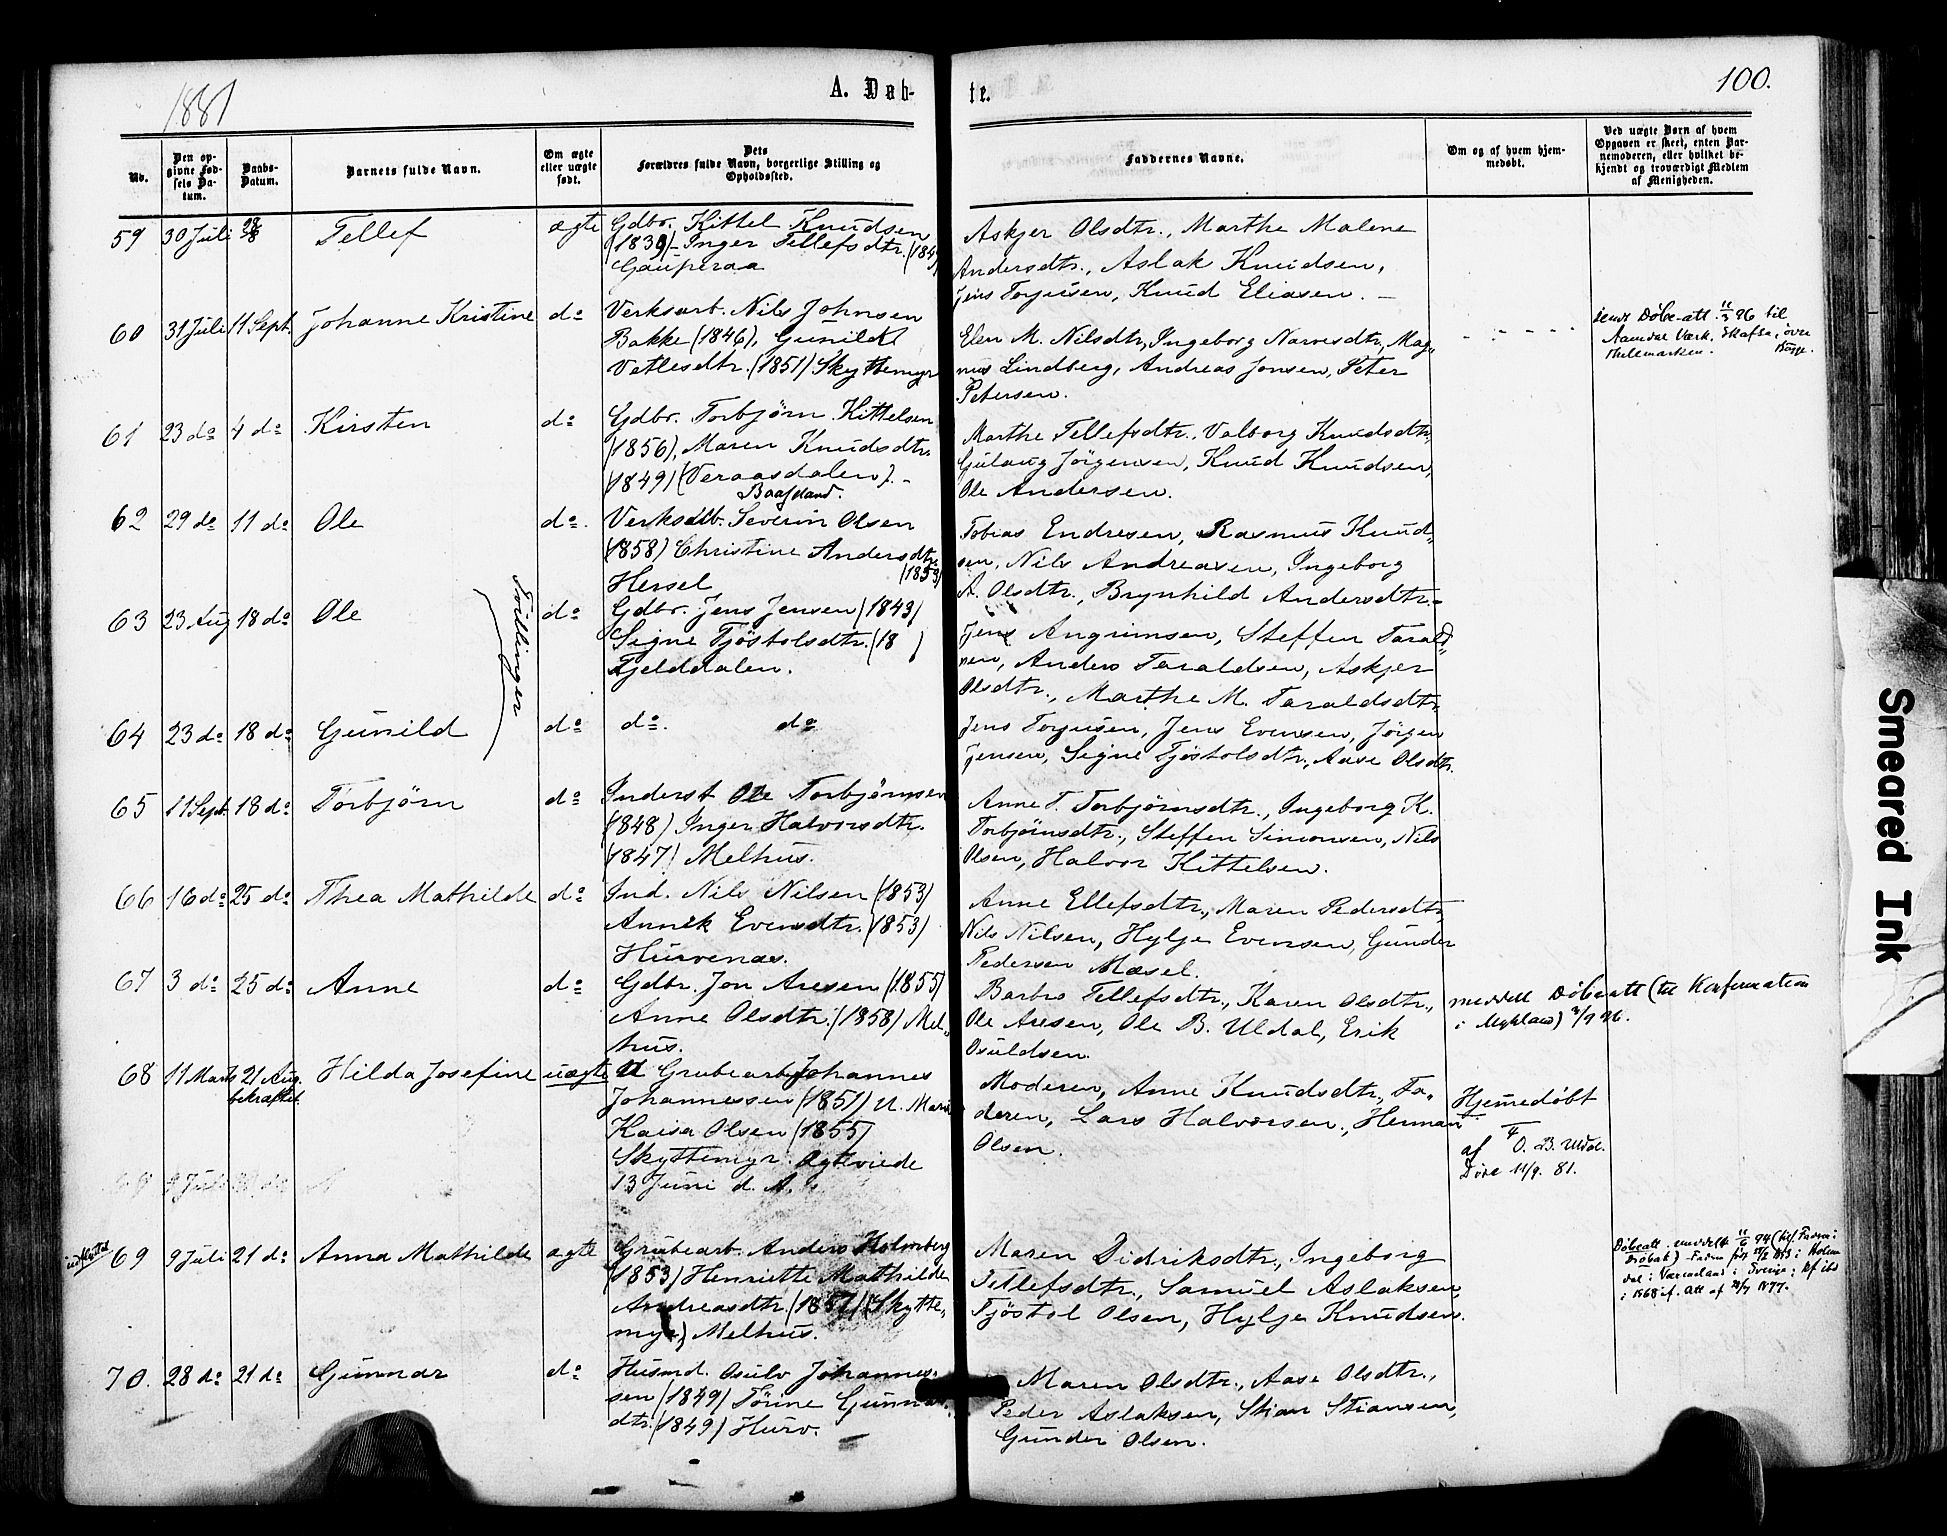 1881
A. Døb-
te.
100.
No.
Den op-
givne Fød-
sels Da-
tum.
Daabs-
Datum.
Barnets fulde Navn.
Om ægte
eller uægte
født.
Dets
Forældres fulde Navn, borgerlige Stilling og
Opholdssted.
Faddernes Navne.
Om og af hvem hjem-
medøbt.
Ved uægte Børn af hvem
Opgaven er skeet, enten Bar-
nemoderen, eller hvilket be-
kjendt og troværdigt Medlem
af Menigheden.
59 30 Juli 28/8 Tellef ægte Gdbr. Kittel Knudsen
(1839) - Inger Tellefsdtr. (184
Gauperaa
Askjer Olsdtr., Marthe Malene
Andersdtr., Aslak Knudsen,
Jens Torjusen, Knud Eliasen. -
60 31 Juli 11 Sept. Johanne Kristine do Verksarb. Nils Johnsen
Bakke (1846), Gunild
Vetlesdtr. (1851) Skyttemyr
Elen M. Nilsdtr, Ingeborg Narvesdtr, Mag„
nus Lindberg, Andreas Jonsen, Peter
Petersen.
Døbe-att. 96 til
Aamdal Værk, Skafsa, øvre
Thellemarken.
61 23 do 4 do Kirsten do Gdbr. Torbjörn Kittelsen
(1856), Maren Knudsdtr.
(1849) (Veraasdalen). -
Baasland.
Marthe Tellefsdtr., Valborg Knudsdtr,
Gulaug Jörgensen, Knud Knudsen,
Ole Andersen.
62 29 do 11 do Ole do. Verksarb. Severin Olsen
(1858) Christine Andersdtr.
(1853)
Hessel
Tobias Endresen, Rasmus Knud„
sen, Nils Andreasen, Ingeborg
A. Olsdtr., Brynhild Andersdtr. -
63 23 Aug 18 do Ole do Gdbr. Jens Jensen (1843)
Signe Tjöstolsdtr. (18 )
Fjelddalen.
Tvillinger
Jens Angrimsen, Steffen Tarald„
sen, Anders Taraldsen, Askjer
Olsdtr., Marthe M. Taraldsdtr,
64 23 do 18 do Gunild do do. do
Jens Torjusen, Jens Evensen, Jörgen
Jensen, Signe Tjöstolsdtr., Aase Olsdtr.
65 11 Sept. 18 do Torbjörn do Inderst Ole Torbjörnsen
(1848) Inger Halvorsdtr.
(1847) Melhus.
Anne T. Torbjörnsdtr., Ingeborg K.
Torbjörnsdtr., Steffen Simonsen, Nils
Olsen, Halvor Kittelsen.
66 16 do 25 do Thea Mathilde do Ind. Nils Nilsen (1853)
Anne K Evensdtr. (1853)
Hurvenæs.
Anne Ellefsdtr., Maren Pedersdtr,
Nils Nilsen, Hylje Evensen, Gunder
Pedersen Mæsel.
67 3 do 25 do Anne do Gdbr. Jon Aresen (1855)
Anne Olsdtr. (1858) Mel„
hus.
Barbro Tellefsdtr., Karen Olsdtr.,
Ole Aresen, Ole B. Uldal, Erik
Osuldsen.
meddelt Døbeatt (til Konfirmation
i Mykland) 96.
68 11 Marts 21 Aug. Hilda Josefine uægte U Grubearb. Johannes
bekræftet.
Johannessen (1851) U. Marie
Kaisa Olsen (1855)
Skyttemyr. Ægteviede
13 Juni d. A.
Moderen, Anne Knudsdtr., Fa„
deren, Lars Halvorsen, Herman
Olsen.
Hjemmedøbt
af O. B. Uldal.
Døde 11/9. 81.
69 9 Juli
indflyttet 69 9 Juli 21 do Anna Mathilde ægte Grubearb. Anders Holmberg
(1853) Henriette Mathilde
Andreasdtr. (1857) (Skytte„
myr) Melhus.
Maren Didriksdtr., Ingeborg
Tellefsdtr., Samuel Aslaksen,
Tjöstol Olsen, Hylje Knudsen.
Døbeatt. meddelt 94 (til Faderen i
Drøbak)
i Sverige
70. 28 do 21 do Gunnar do Husmd. Osulv Johannes„
sen (1849) Törine Gunnars„
dtr. (1849) Hurv.
Maren Olsdtr., Aase Olsdtr.,
Peder Aslaksen, Stian Stiansen,
Gunder Olsen.
Smeared Ink